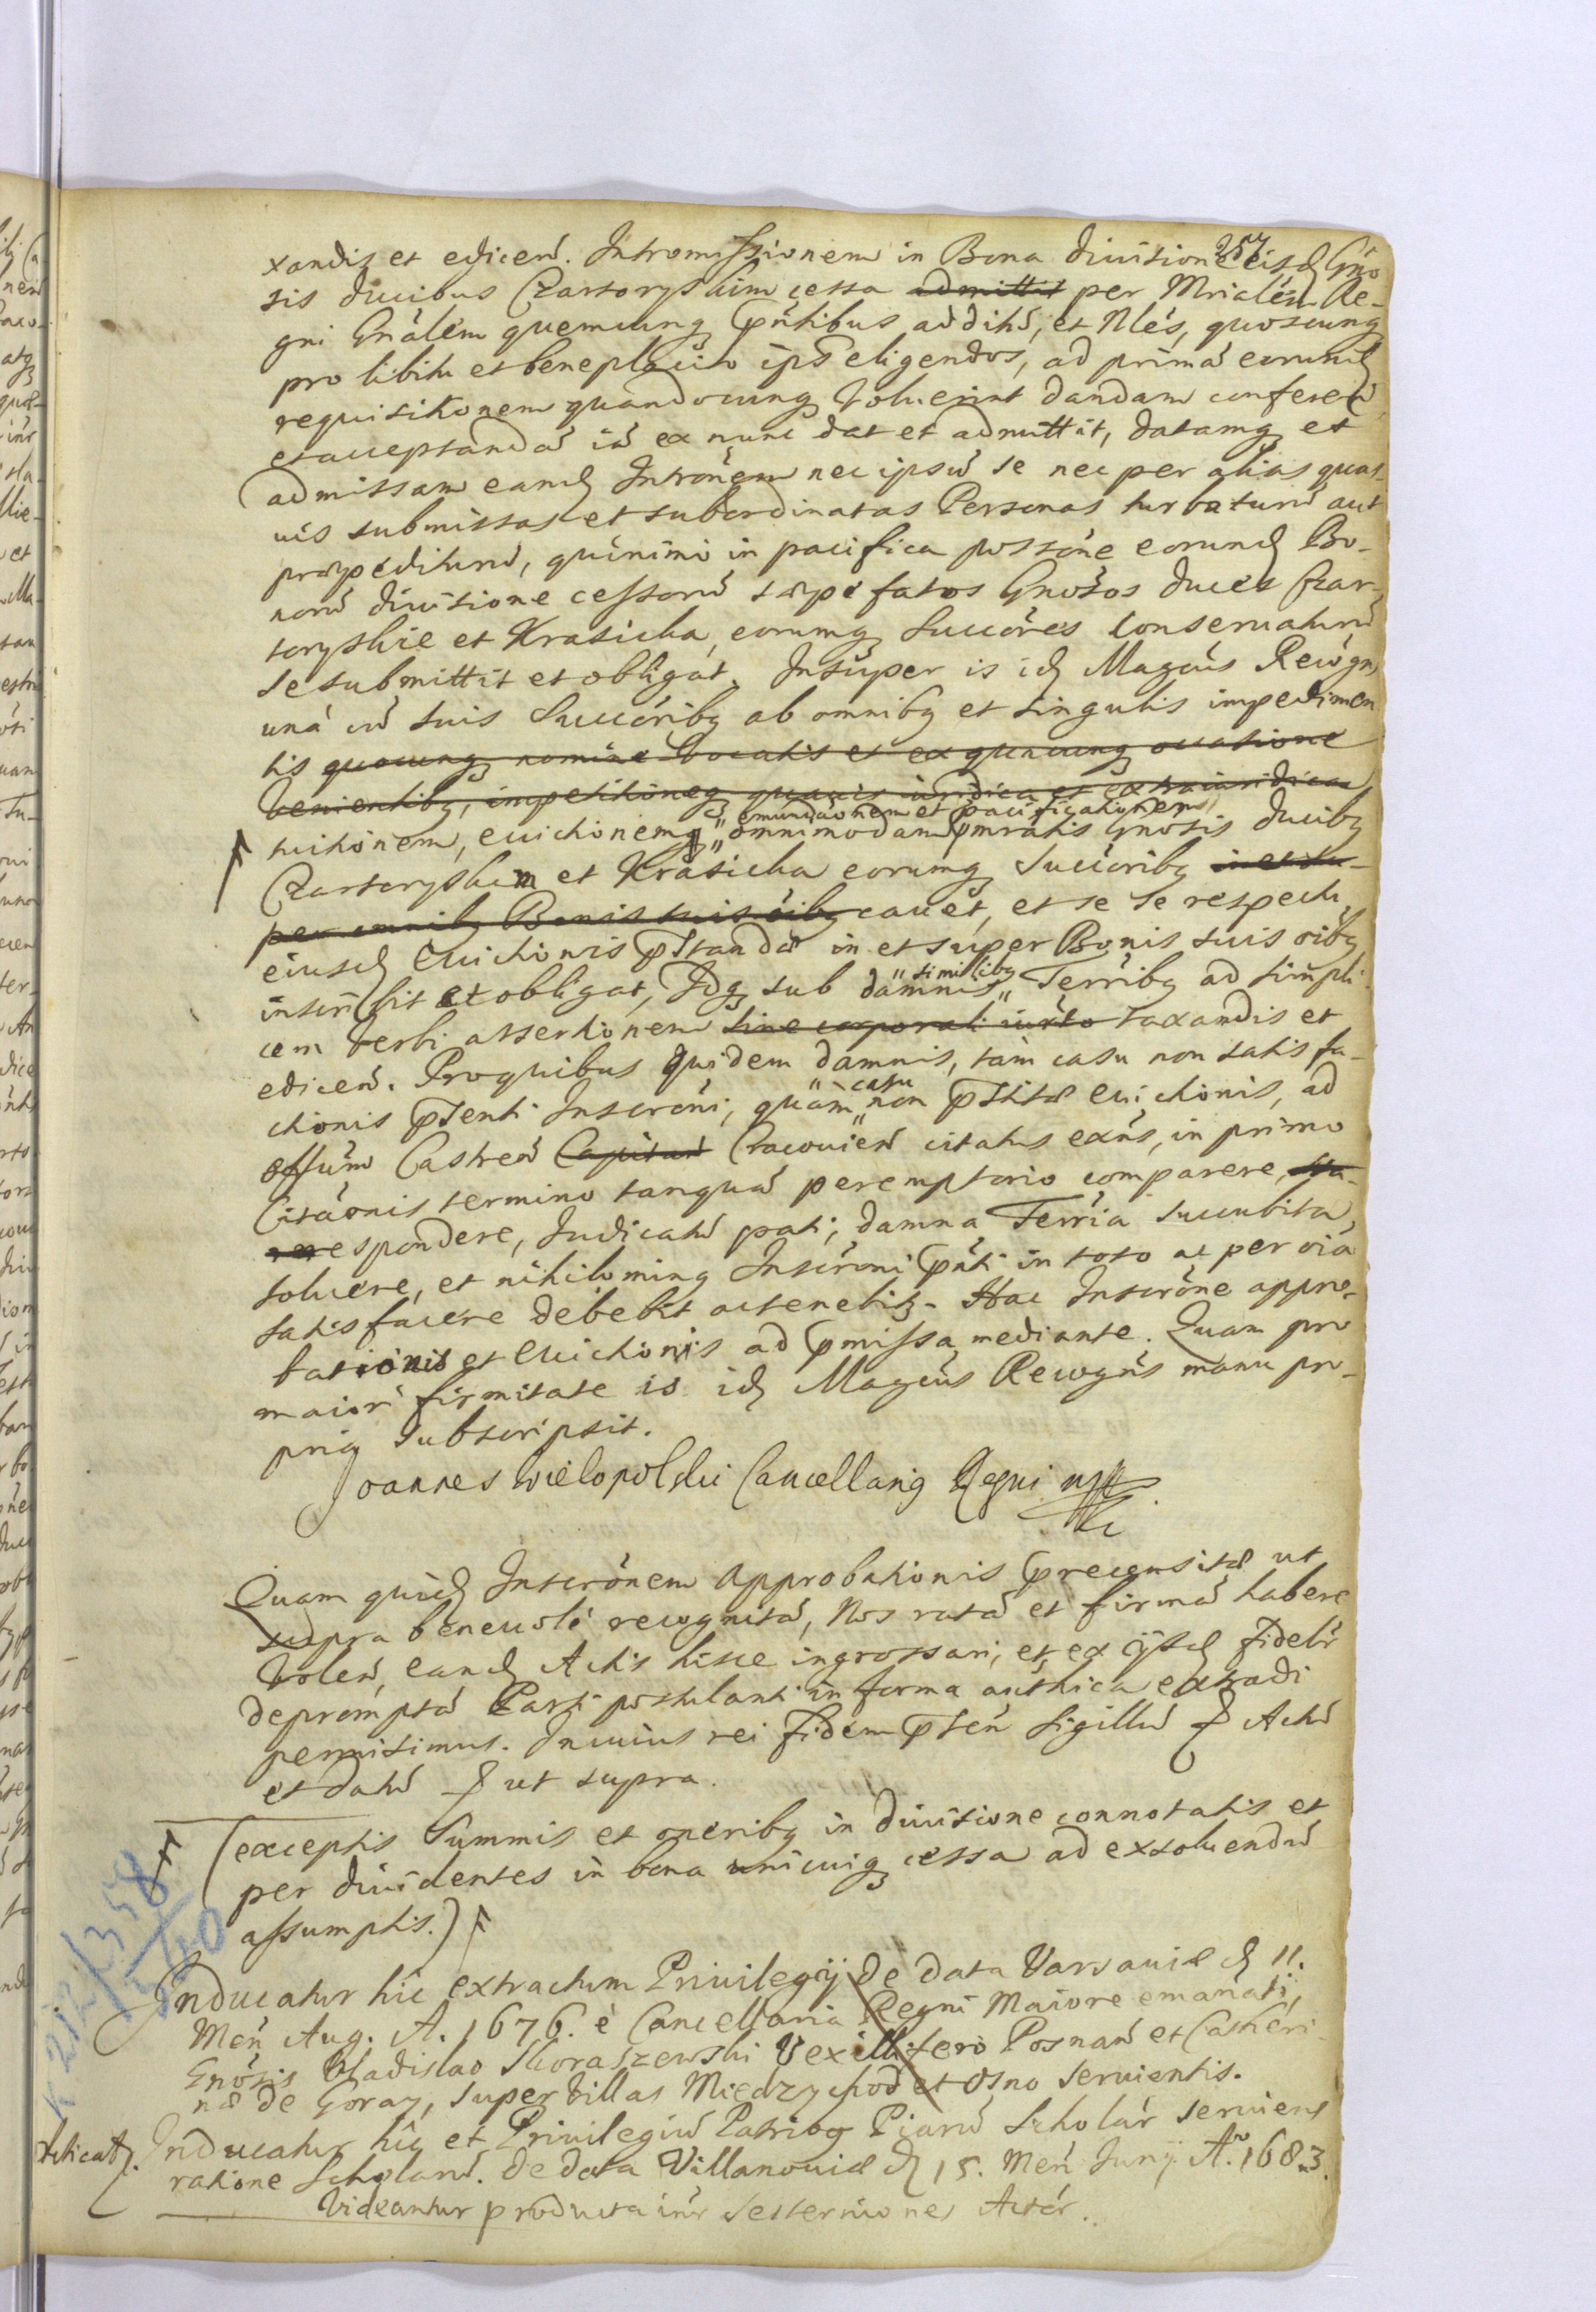 257
xandis et edicen. Intromissionem in Bona diuisione eisd Gnо
sis ducibus Czartoryskim cessa admittit per Mrialem Re-
gni Gnalem quemcunq pntibus addihu, et Nles, quoscunq
pro libitu et beneplacito ips eligendos, ad prima eorumd
requisitionem quandocunq voluerint dandam conferen
et acceptanda ia ex nunc dat et admittit, datamq et
admissam eamd Intronem nec ipsu se nec per alias quas
uis submissas et subordinatas Personas turbaturu aut
præpedituru, quinimo in pacifica possone eorumd Bo-
noru diuisione cessoru sæpe fatos Gnosos duces Czar-
toryskie et Krasicka, eorumq Succores conseruaturu
se submittit et obligat. Insuper is id Magcus Recogns
una cu suis Succoribq ab omnibq et singulis impedimen
tis quocunq nomine vocatis et ex quacunq occasione
venientibq, impetitioneq quauis iuridica et extraiuridica
emundaonem et pacificationem
tuitionem, euictionemq omnimodam pmratis Gnosis ducibq
Czartoryskim et Krasicka eorumq Succoribq in et su-
per omnibq Bonis suis oibq cauet, et se se respectu
eiusd Euictionis pstandæ in et super Bonis suis oibq
inscribit et obligat, Idq sub damnis similibq Terribq ad simpli
cem verbi assertionem sine corporali iurto taxandis et
edicen. Pro quibus quidem damnis, tam casu non satisfa-
ctionis psenti Inscroni, quam casu non pstitæ euictionis, ad
offum Castren Capitan Cracouien citatus exns, in primo
Citaonis termino tanquá peremptorio comparere, sta-
re respondere, Iudicatu pati, damna Terria succubita,
soluere, et nihilominq Inscroni pnti in toto ac per oia
satisfacere debebit ac tenebitq. Hac Inscrone appro-
bationis et Euictionis ad pmissa mediante. Quam pro
maiori firmitate is id Magcus Recogns manu pro-
priq subscripsit.
Joannes Wielopolski Cancellariq Regni mpp
Quam quid Inscronem Approbationis præcensitæ ut
supra beneuole recognitá, Nos ratá et firmá habere
Volen, eand Actis hisce ingrossari, et ex ijsd fidelr
depromptá Parti postulanti in forma authica extradi
permisimus. In cuius rei fidem psen sigillu Actu
et datu ut supra.
(exceptis Summis et oneribq in diuisione connotatis et
per diuidentes in bona unicuiq cessa ad exsoluendu
assumptis.)
Inducatur hic extractum Priuilegij de data Varsauiæ d 11.
Men Aug. A. 1676. è Cancellaria Regni Maiore emanati,
Gnosis Vladislao Skoraszewski Vexillifero Posnan et Catheri
næ de Goray, super villas Miedzychod et Osno seruientis.
Inducatur hic et Priuilegiu Patribq Piaru Scholar seruiens
ratione Scholaru. de data Villanouiæ d 15. Men Junij Ao. 1683.
Videantur producta inr Sesterniones Actor.
K 212/358